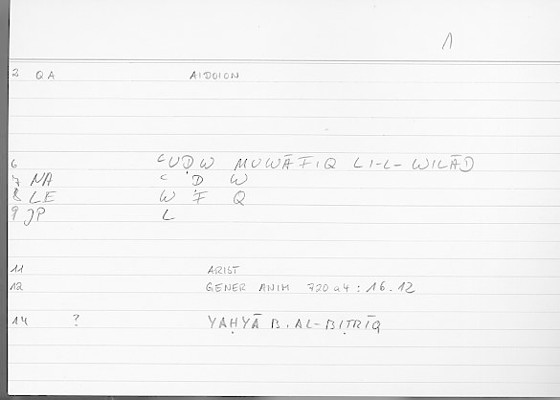 1
2 QA AIDOION
6 ʿUḌW MUWĀFIQ LI-L-WILĀD
7 NA ʿ Ḍ W
8 LE W F Q
9 JP L
11 ARIST
12 GENER ANIM 720a4 : 16.12
14 ? YAḤYĀ B. AL-BIṬRĪQ